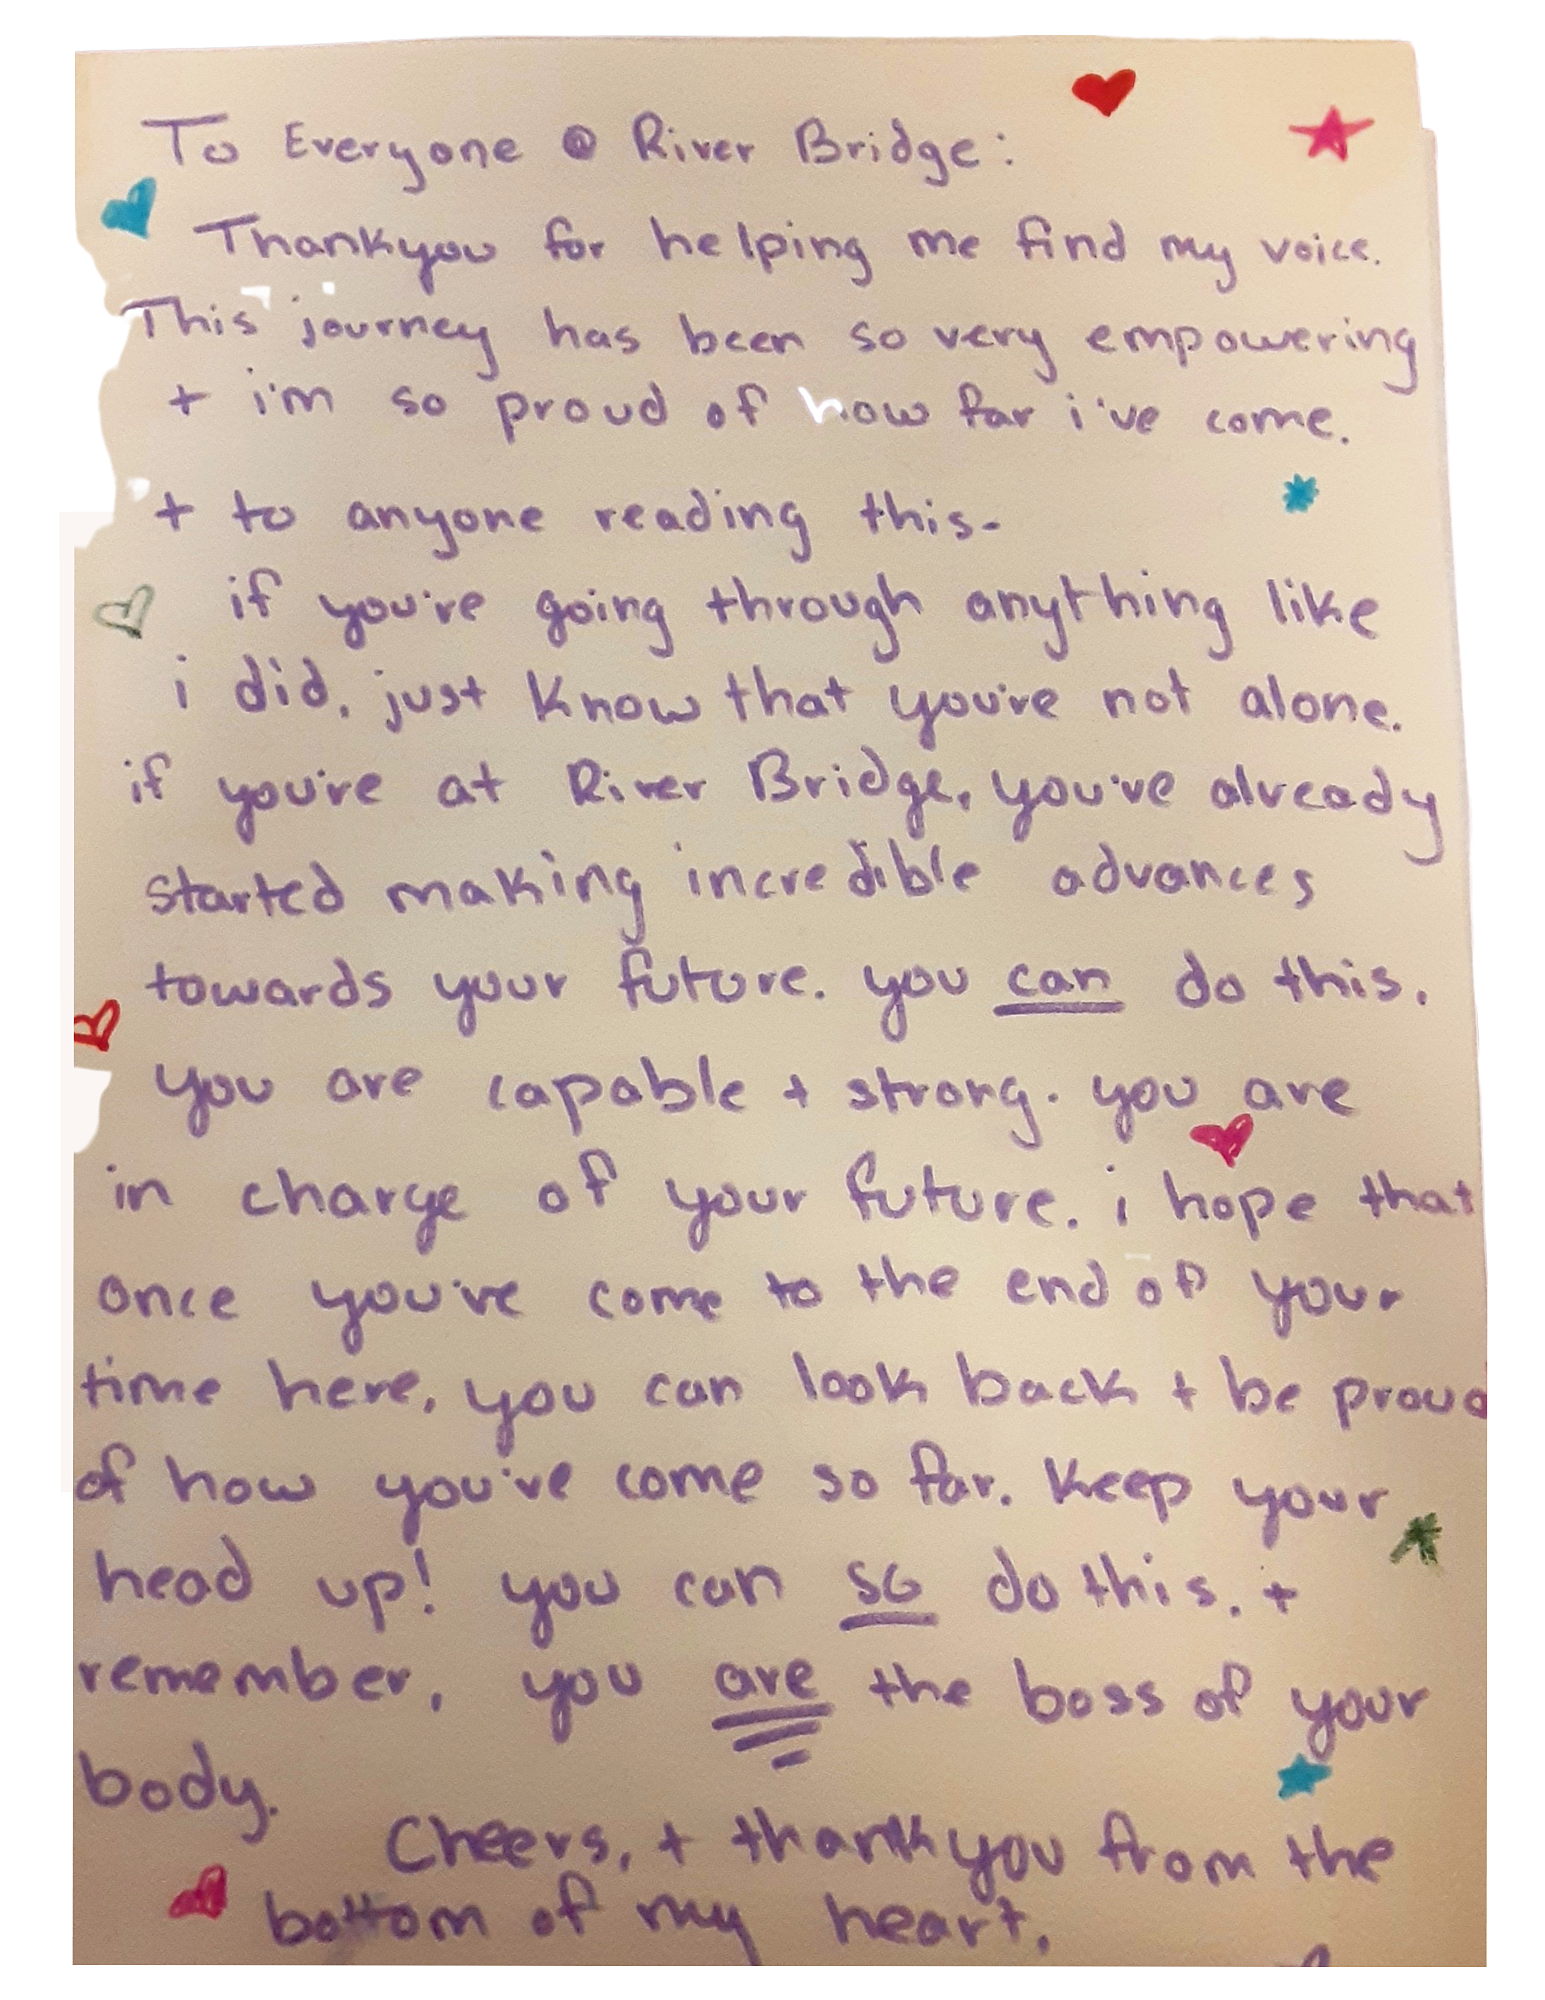 To Everyone @ River Bridge:
Thankyou for helping me find my voice.
This journey has been so very empowering
+ i'm so proud of how far i've come.
+ to anyone reading this-
if you're going through anything like
i did, just know that you're not alone.
if you're at River Bridge, you've already
started making incredible advances
towards your future. you can do this.
you are capable + strong. you are
in charge of your future. i hope that
once you've come to the end of your
time here, you can look back + be proud
of how you've come so far. Keep your
head up! you can so do this. +
remember, you are the boss of your
body.
Cheers, + thankyou from the
bottom of my heart,